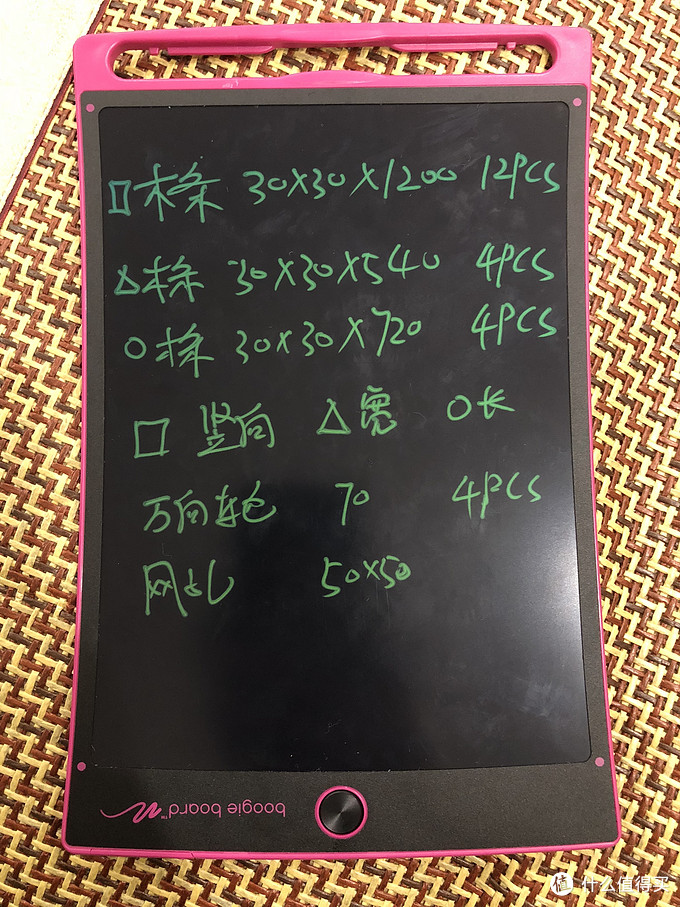 □ 木条 30X30X1200 12PCS
△ 木条 30X30X540 4PCS
○ 木条 30X30X720 4PCS
□ 竖向 △ 宽 ○ 长
万向轮 70 4PCS
网孔 50X50
boogie board™
值 什么值得买